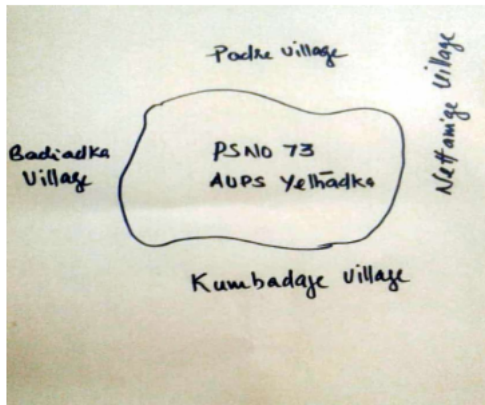 Padre village
Nettanige village
Badiadka
Village
PSNO 73
AUPS Yelhādka
Kumbadaje village